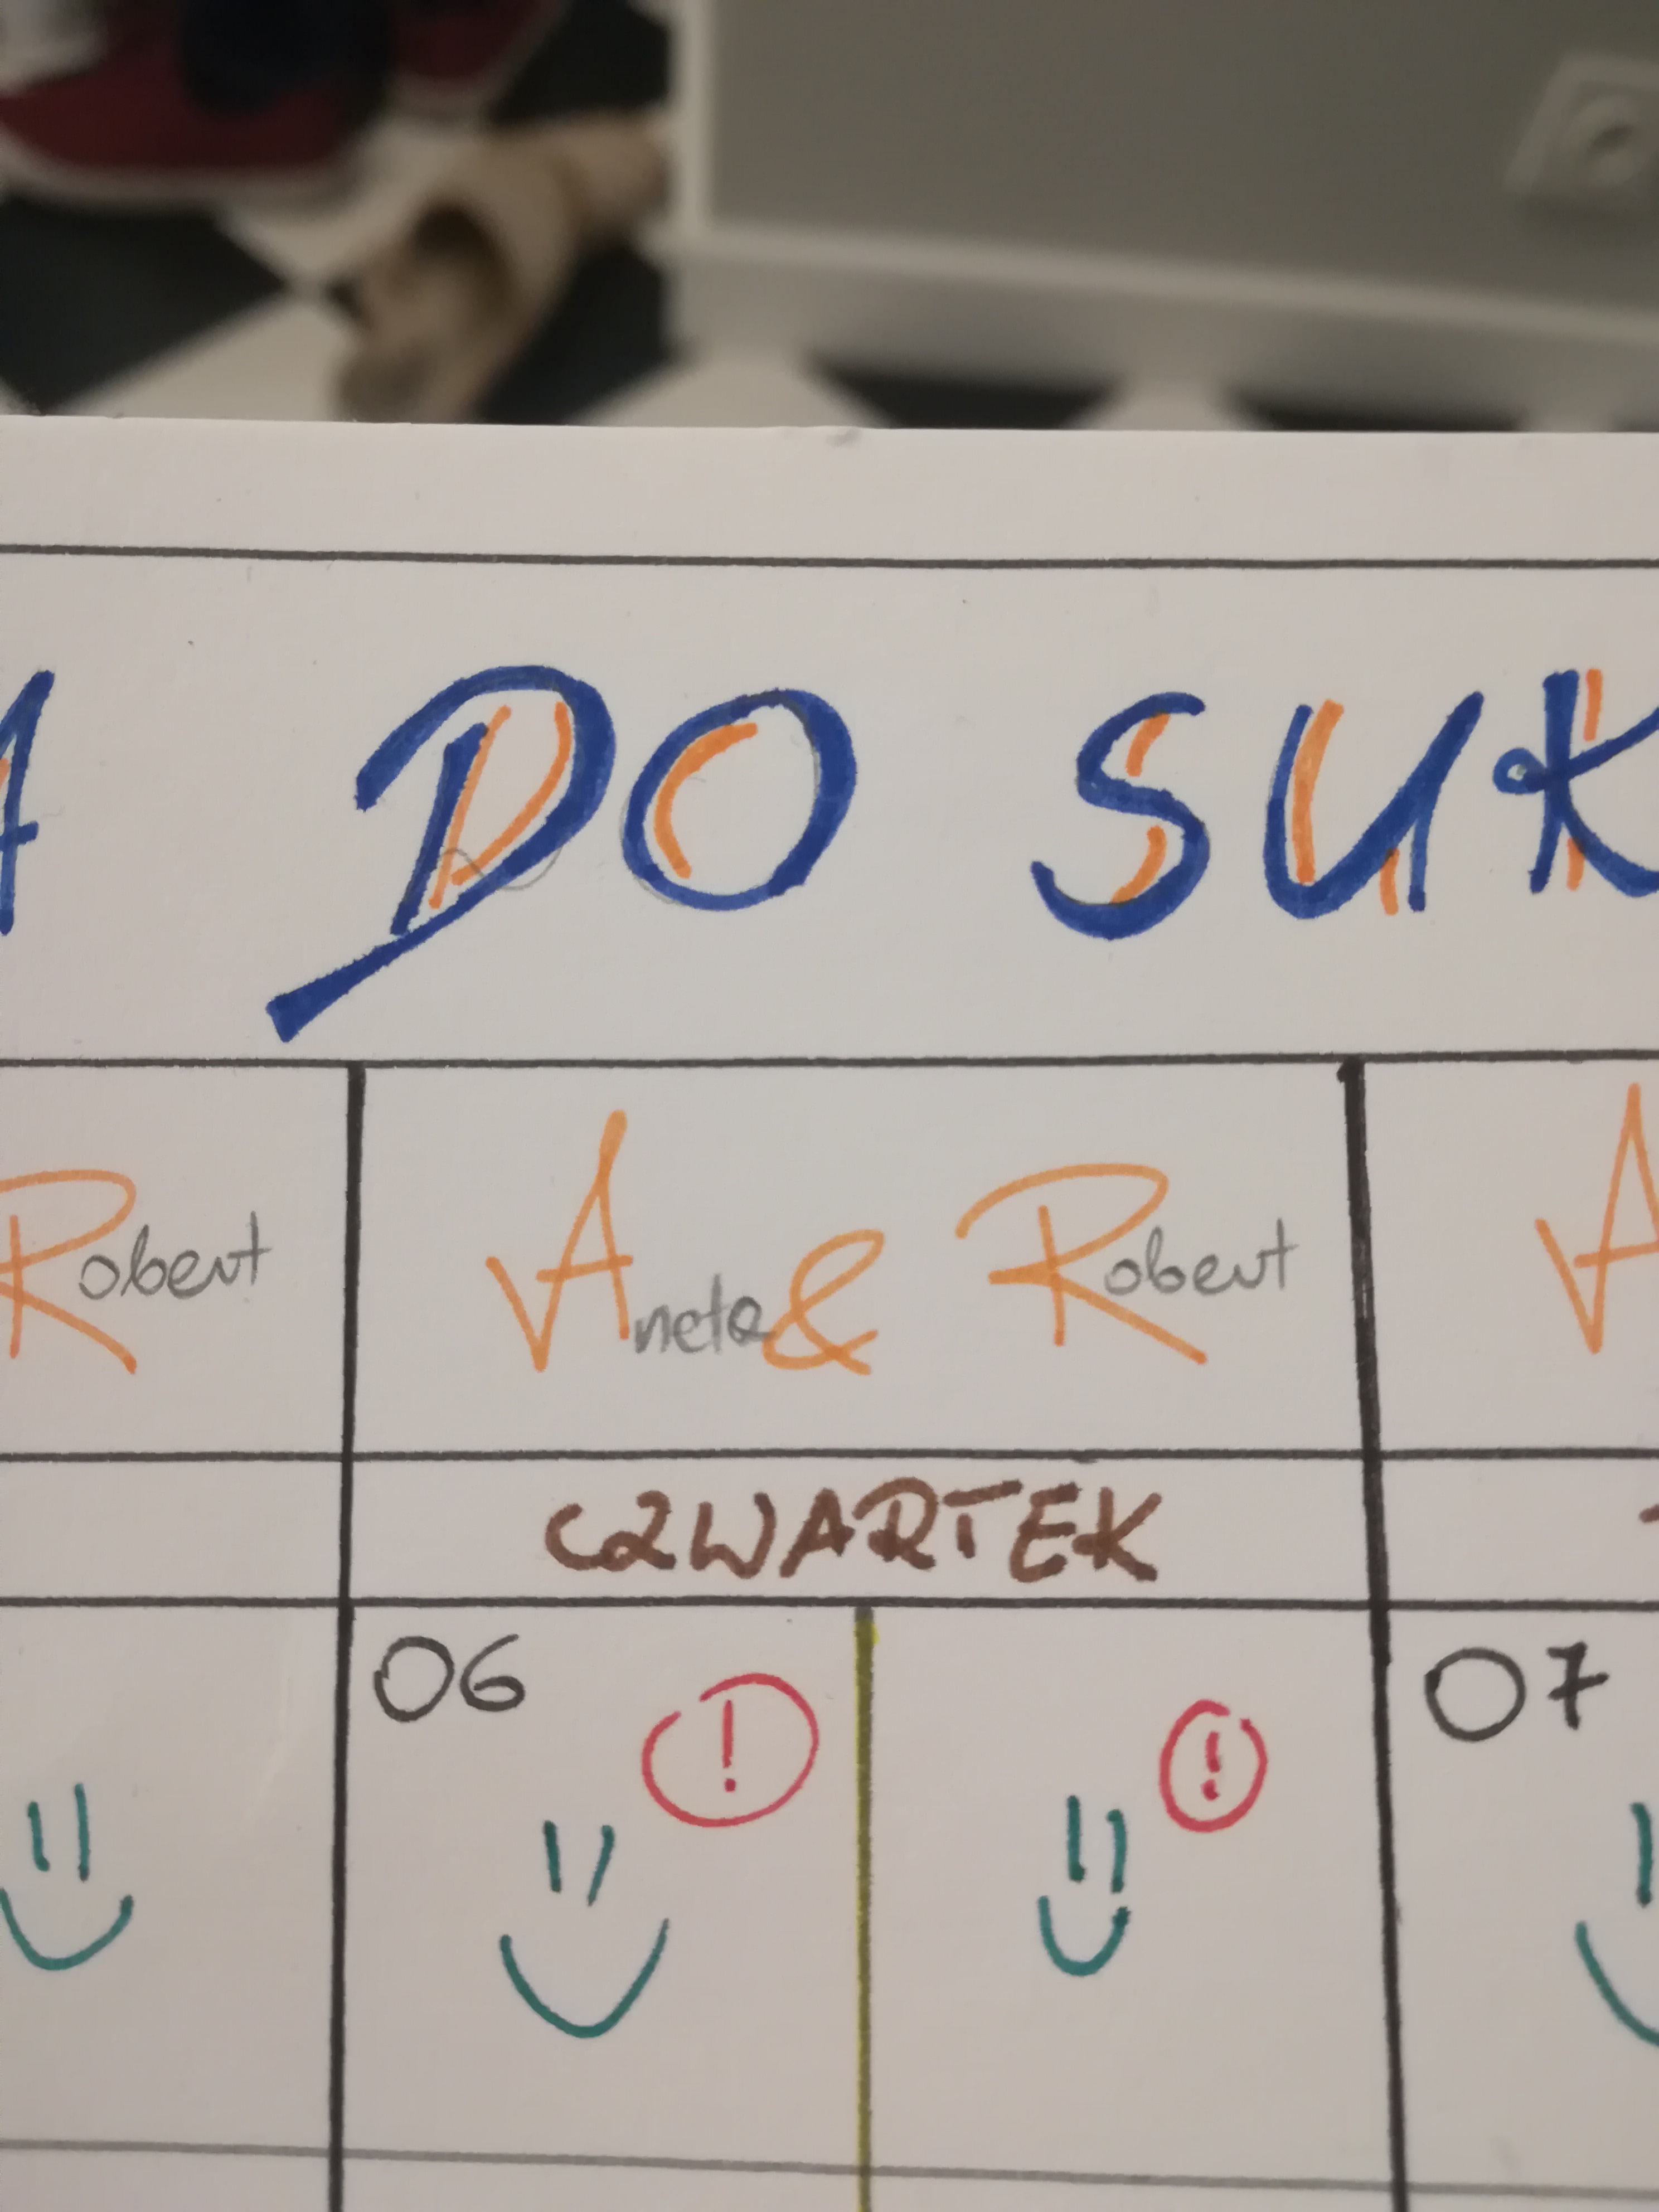 A DO SUK
Robert Aneta & Robert A
CZWARTEK
06 ! ! 07